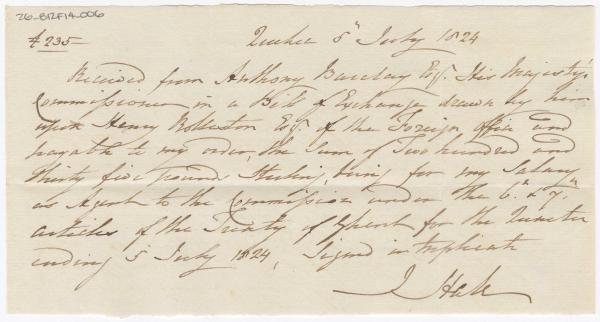 26-B12F14-006
£235- Quebec 5th July 1824
Received from Anthony Barclay Esqr. His Majesty's
Commissioner in a Bill of Exchange drawn by him
upon Henry Rolleston Esqr. of the Foreign Office and
payable to my order, the Sum of Two hundred and
thirty five pounds Sterling, being for my Salary
as Agent to the Commission under the 6th & 7th
articles of the Treaty of Ghent for the Quarter
ending 5 July 1824, Signed in triplicate
J Hale